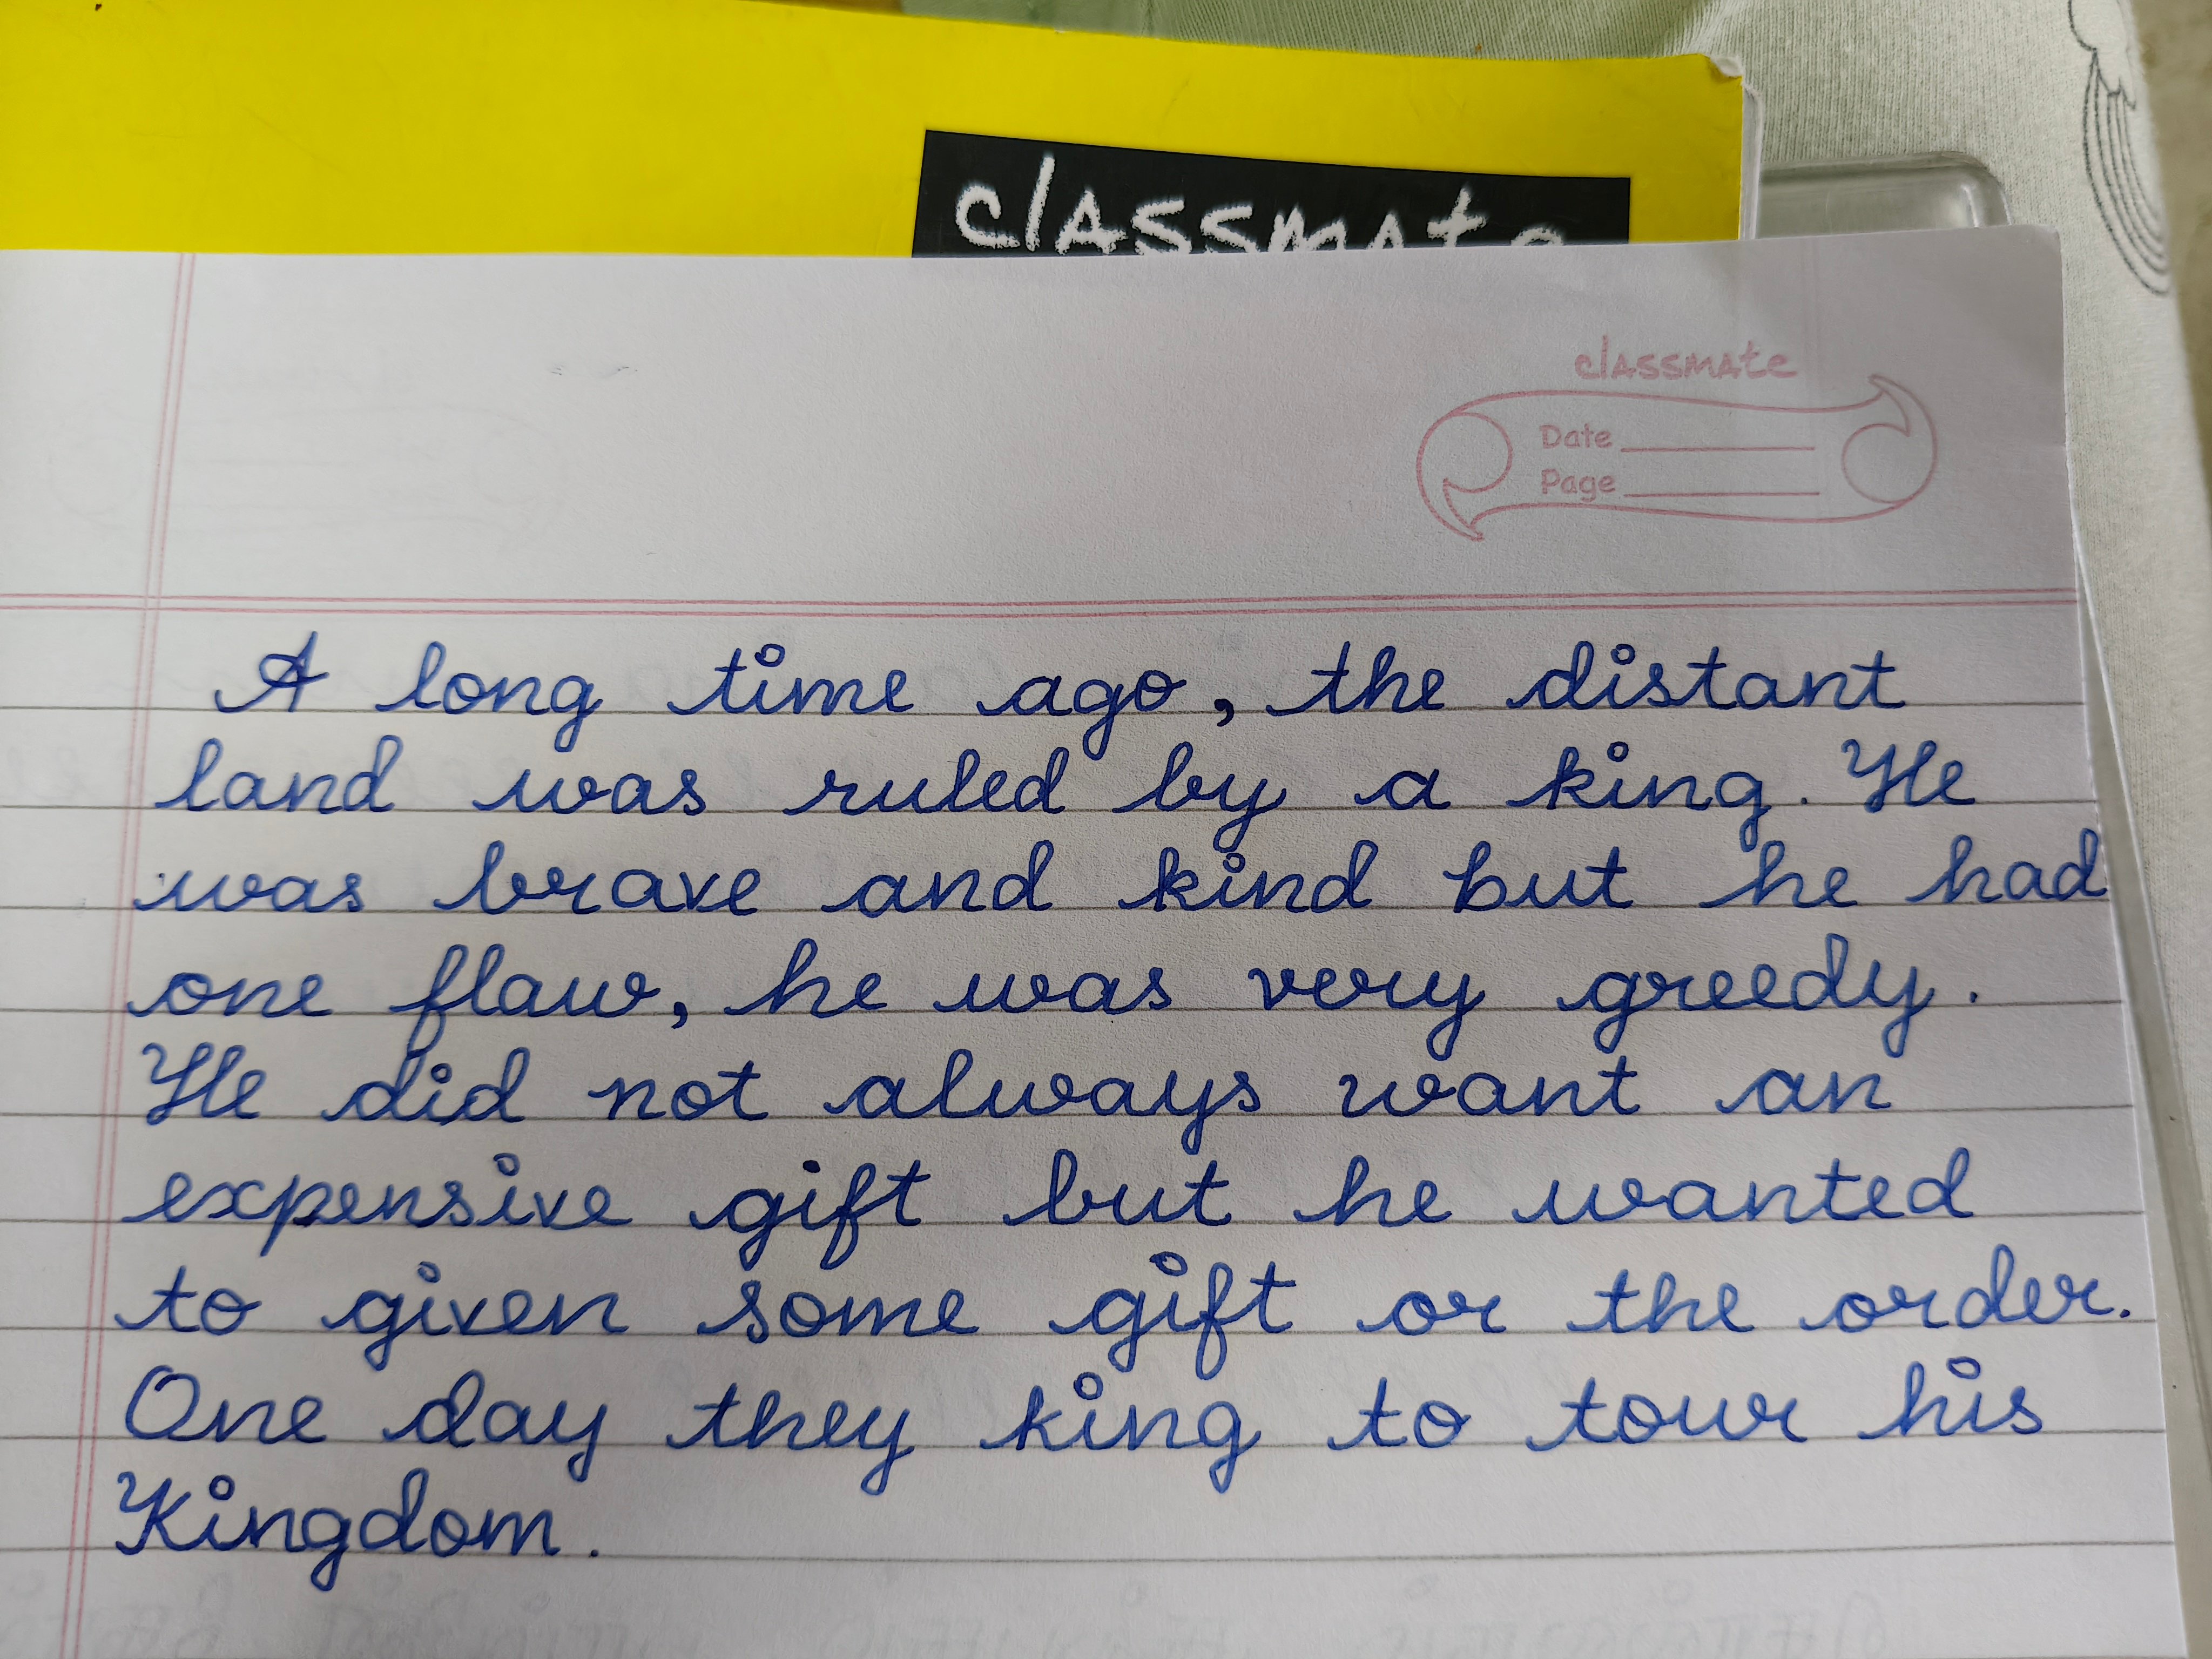 classmate
classmate
Date
Page
A long time ago, the distant
land was ruled by a king. He
was brave and kind but he had
one flaw, he was very greedy.
He did not always want an
expensive gift but he wanted
to given some gift or the order.
One day they king to tour his
Kingdom.